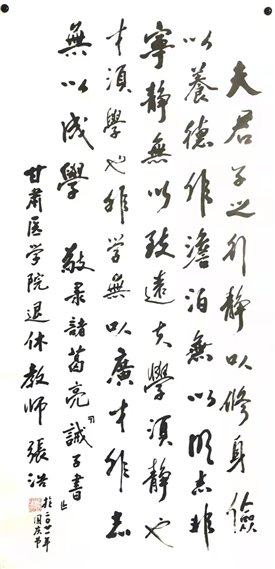 夫君子之行静以修身儉
以養德非澹泊無以明志非
寧静無以致遠夫學須静也
才須學也非学無以廣才非志
無以成學 敬录諸葛亮誡子書
甘肅医学院退休教師張洪
於二〇廿一年
国庆节